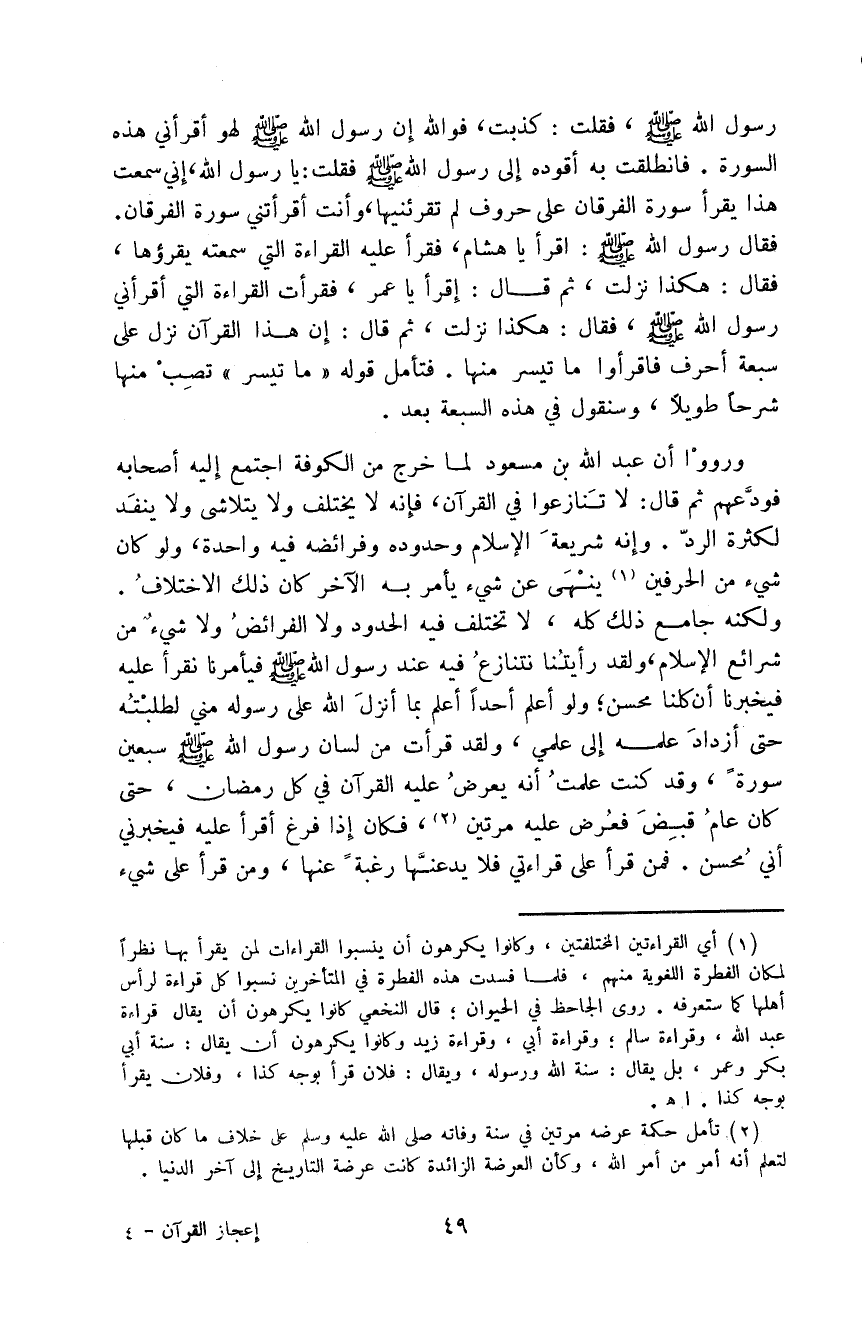 رسول الله ﷺ ، فقلت : كذبت، فوالله إن رسول الله ﷺ لهو أقرأني هذه
السورة . فانطلقت به أقوده إلى رسول الله ﷺ فقلت: يا رسول الله، إني سمعت
هذا يقرأ سورة الفرقان على حروف لم تقرئنيها، وأنت أقرأتني سورة الفرقان.
فقال رسول الله ﷺ : اقرأ يا هشام، فقرأ عليه القراءة التي سمعته يقرؤها ،
فقال : هكذا نزلت ، ثم قـــال : إقرأ يا عمر ، فقرأت القراءة التي أقرأني
رسول الله ﷺ ، فقال : هكذا نزلت ، ثم قال : إن هـذا القرآن نزل على
سبعة أحرف فاقرأوا ما تيسر منها . فتأمل قوله « ما تيسر » تصِبْ منها
شرحاً طويلاً ، وسنقول في هذه السبعة بعد .
ورووْا أن عبد الله بن مسعود لمـا خرج من الكوفة اجتمع إليه أصحابه
فودَّعهم ثم قال: لا تَنازعوا في القرآن، فإنه لا يختلف ولا يتلاشى ولا ينفَد
لكثرة الردّ . وإنه شريعةَ الإسلام وحدوده وفرائضه فيه واحدة، ولو كان
شيء من الحرفين (١) ينْهَى عن شيء يأمر بـه الآخر كان ذلك الاختلافُ .
ولكنه جامـع ذلك كله ، لا تختلف فيه الحدود ولا الفرائضُ ولا شيءٌ من
شرائع الإسلام، ولقد رأيتُنا نتنازعُ فيه عند رسول الله ﷺ فيأمرنا نقرأ عليه
فيخبرنا أن كلنا محسن؛ ولو أعلم أحداً أعلم بما أنزلَ الله على رسوله مني لطلبْتُه
حتى أزدادَ علمـه إلى علمي ، ولقد قرأت من لسان رسول الله ﷺ سبعين
سورةً ، وقد كنت علمتُ أنه يعرضُ عليه القرآن في كل رمضان ، حتى
كان عامُ قبِضَ فعُرض عليه مرتين (٢) ، فكان إذا فرغ أقرأ عليه فيخبرني
أني مُحسن . فمن قرأ على قراءتي فلا يدعنَّها رغبةً عنها ، ومن قرأ على شيء
(١) أي القراءتين المختلفتين ، وكانوا يكرهون أن ينسبوا القراءات لمن يقرأ بهـا نظراً
لمكان الفطرة اللغوية منهم ، فلمـا فسدت هذه الفطرة في المتأخرين نسبوا كل قراءة لرأس
أهلها كما ستعرفه . روى الجاحظ في الحيوان ؛ قال النخعي كانوا يكرهون أن يقال قراءة
عبد الله ، وقراءة سالم ؛ وقراءة أبي ، وقراءة زيد وكانوا يكرهون أن يقال : سنة أبي
بكر وعمر ، بل يقال : سنة الله ورسوله ، ويقال : فلان قرأ بوجه كذا ، وفلان يقرأ
بوجه كذا . اﻫ .
(٢) تأمل حكمة عرضه مرتين في سنة وفاته صلى الله عليه وسلم على خلاف ما كان قبلها
لتعلم أنه أمر من أمر الله ، وكأن العرضة الزائدة كانت عرضة التاريخ إلى آخر الدنيا .
٤٩
إعجاز القرآن - ٤